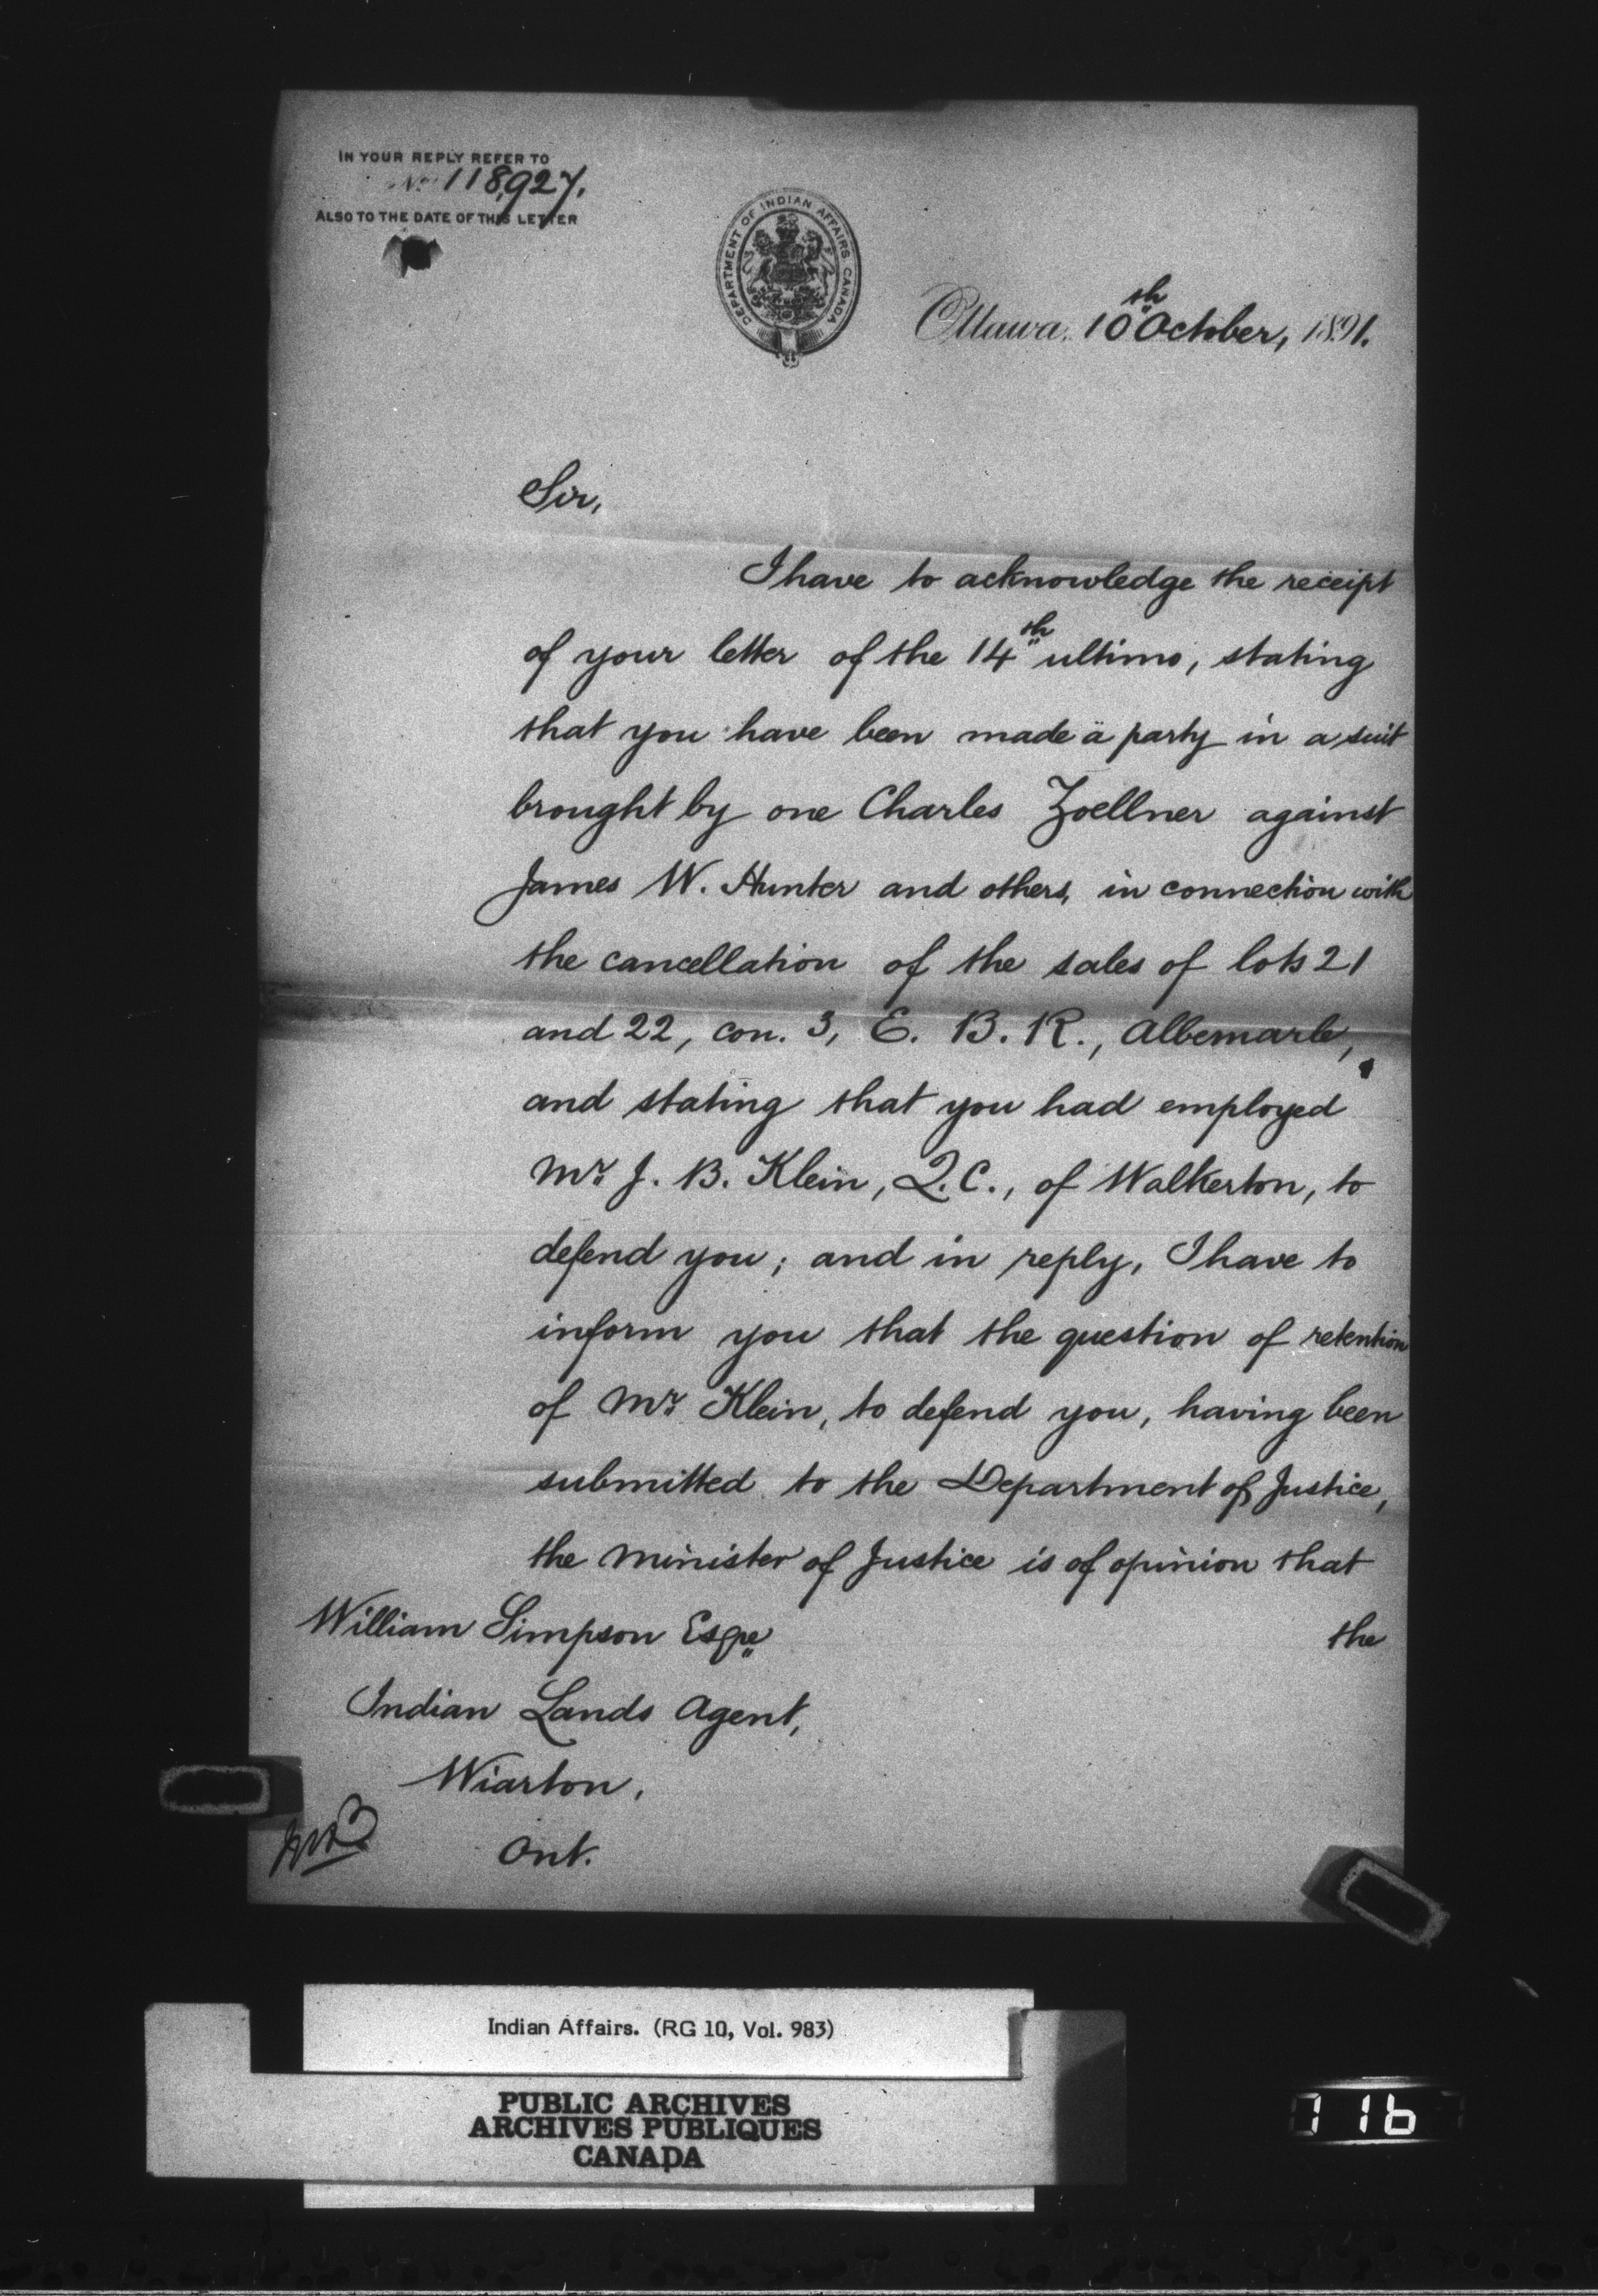 IN YOUR REPLY REFER TO
No 118,927.
ALSO TO THE DATE OF THIS LETTER
DEPARTMENT OF INDIAN AFFAIRS CANADA
Ottawa, 10th October, 1891.
Sir,
I have to acknowledge the receipt
of your letter of the 14th ultimo, stating
that you have been made a party in a suit
brought by one Charles Zoellner against
James W. Hunter and others, in connection with
the cancellation of the sales of lots 21
and 22, con. 3, E. B. R., Albemarle,
and stating that you had employed
Mr. J. B. Klein, Q.C., of Walkerton, to
defend you; and in reply, I have to
inform you that the question of retention
of Mr. Klein, to defend you, having been
submitted to the Department of Justice,
the Minister of Justice is of opinion that
the
William Simpson Esqre
Indian Lands Agent,
Wiarton,
Ont.
Indian Affairs. (RG 10, Vol. 983)
PUBLIC ARCHIVES
ARCHIVES PUBLIQUES
CANADA
116